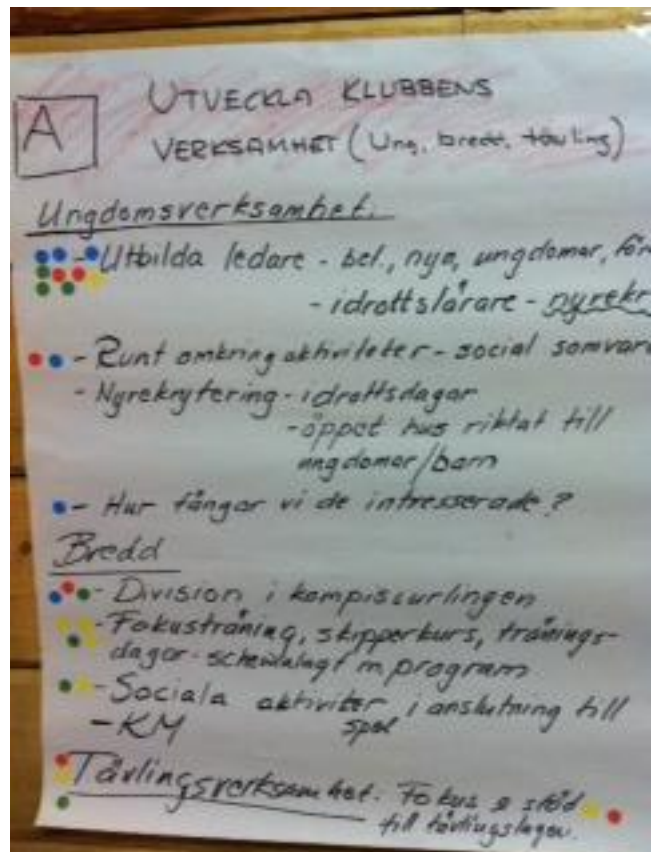 UTVECKLA KLUBBENS
A
VERKSAMHET (Ung, bredd, tävling)
Ungdomsverksamhet.
- Utbilda ledare - bef., nya, ungdomar, för
- idrottslärare - nyrekr
- Runt omkring aktiviteter - social samvaro
- Nyrekrytering - idrottsdagar
- öppet hus riktat till
ungdomar/barn
- Hur fångar vi de intresserade?
Bredd
- Division i kompiscurlingen
- Fokusträning, skipperkurs, tränings-
dagar - schemalagt m program
- Sociala aktiviter i anslutning till
- KM spel
Tävlingsverksamhet. Fokus & stöd
till tävlingslagen.